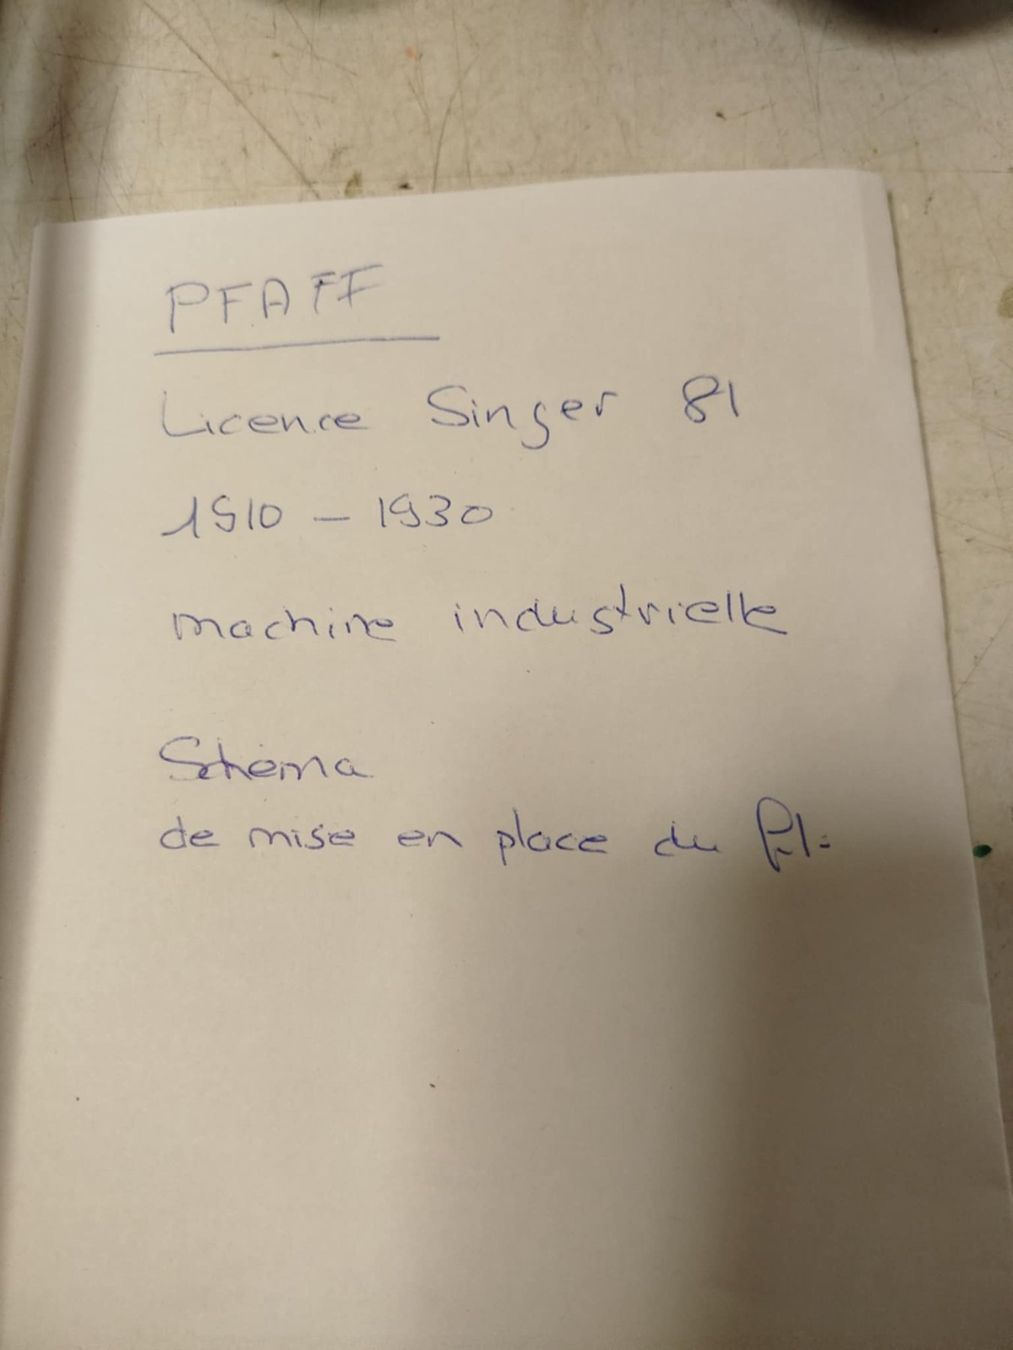 PFAFF
Licence Singer 81
1910 – 1930
machine industrielle
Schéma
de mise en place du fil.